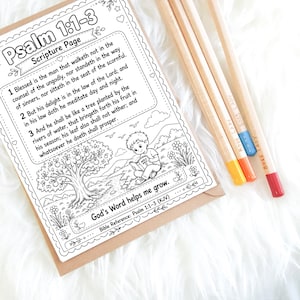 Psalm 1:1-3
Scripture Page
1 Blessed is the man that walketh not in the way
counsel of the ungodly, nor standeth in the way
of sinners, nor sitteth in the seat of the scornful.
2 But his delight is in the law of the Lord; and
in his law doth he meditate day and night.
3 And he shall be like a tree planted by the
rivers of water, that bringeth forth his fruit in
his season; his leaf also shall not wither; and
whatsoever he doeth shall prosper.
God's Word helps me grow.
Bible Reference: Psalm 1:1-3 (KJV)